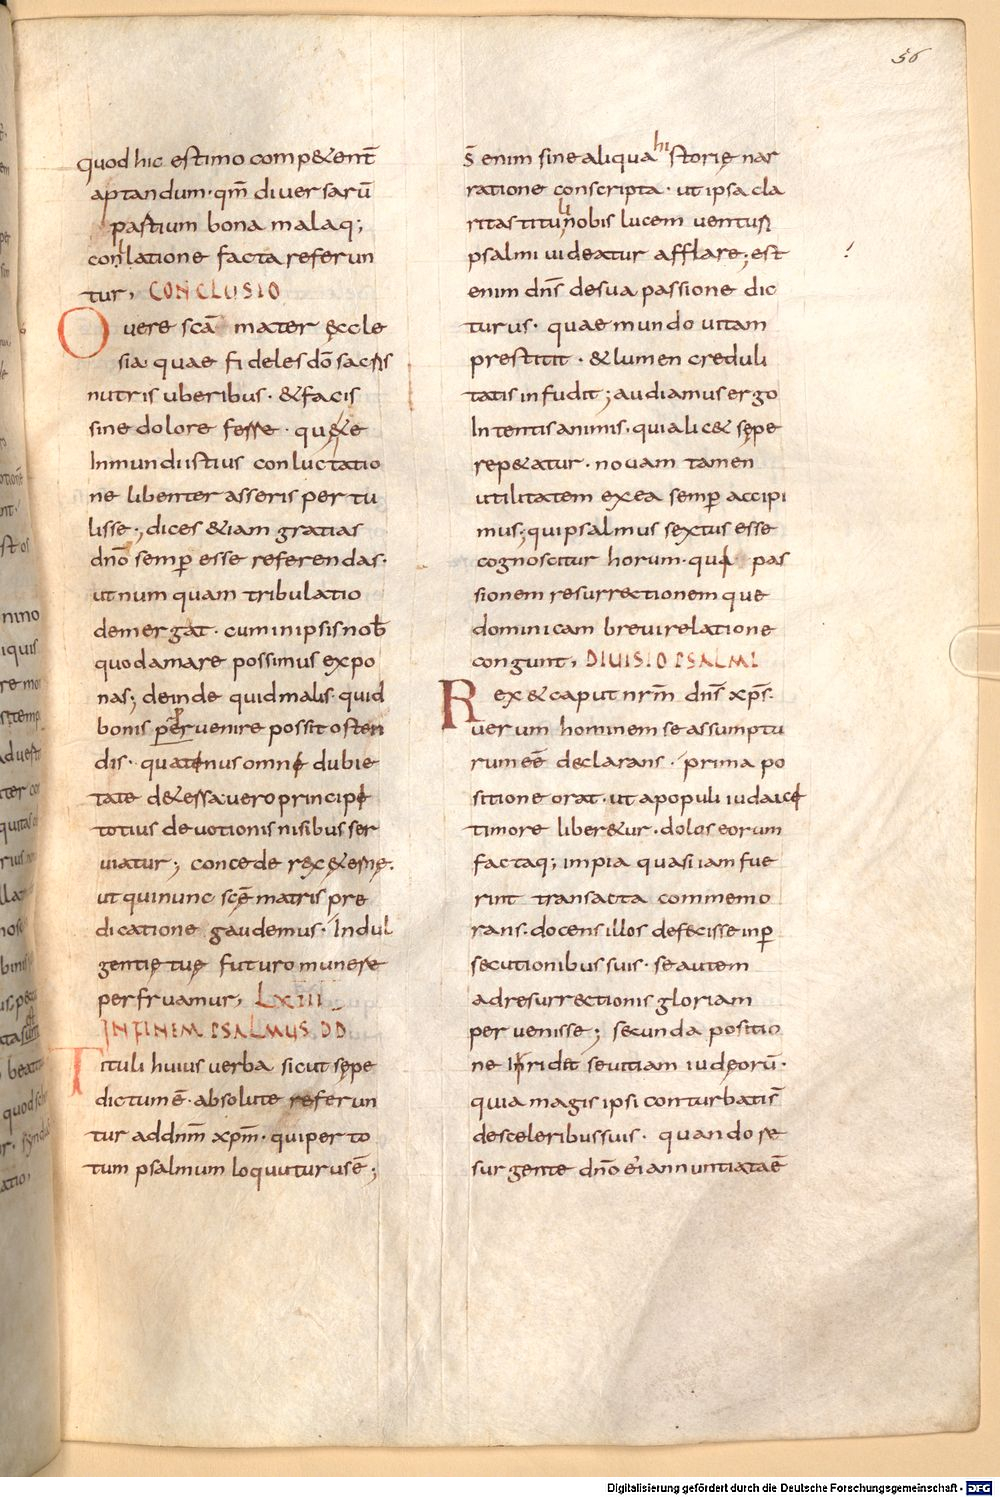 56
quod hic estimo comp&ent̄
aptandum · qm̄ diuersarū
pastium bona malaq;
conlatione facta referun
tur, CONCLUSIO
O uere scā mater ęccle
sia · quae fideles dō sacris
nutris uberibus · &facis
sine dolore fesse · qu&e
Inmundi istius conluctatio
ne libenter asseris pertu
lisse ·, dices &iam gratias
dnō semp̄ esse referendas ·
ut num quam tribulatio
demergat · cum in ipsis nob̄
quod amare possimus expo
nas; deinde quid malis · quid
bonis peruenire possit osten
dis · quatenus omne dubie
tate d&essa uero principe
totius deuotionis nisibus ser
uiatur; concede rex &erne ·
ut qui nunc scę̄ matris pre
dicatione gaudemus · Indul
gentię tuę futuro munere
perfruamur, LXIII
IN FINEM PSALMUS DD
Tituli huius uerba sicut sępe
dictum ē · absolute referun
tur ad dnm̄ xpm̄ · qui per to
tum psalmum loquuturus ē;
S̄ enim sine aliqua histories nar
ratione conscripta · ut ipsa cla
ritas tituli nobis lucem uenturi
psalmi uideatur afflare; est
enim dns̄ de sua passione dic
turus · quae mundo uitam
prestitit · &lumen creduli
tatis infudit; audiamus ergo
Intentis animis · quia lic& sępe
rep&atur · nouam tamen
utilitatem ex ea semp̄ accipi
mus; qui psalmus sextus esse
cognoscitur horum · qui pas
sionem resurrectionem que
dominicam breui relatione
congunt, DIUISIO PSALMI
Rex &caput nrm̄ dns̄ xps̄ ·
uerum hominem se assumptu
rum eē declarans · prima po
sitione orat · ut a populi iudaice
timore liber&ur · dolos eorum
factaq; impia quasi iam fue
rint transacta commemo
rans · docens illos defecisse inp̄
secutionibus suis · se autem
ad resurrectionis gloriam
peruenisse; secunda positio
ne Inridet seuitiam iudęorū ·
quia magis ipsi conturbati s̄
de sceleribus suis · quando re
surgente dnō ei annuntiata ē
!
Digitalisierung gefördert durch die Deutsche Forschungsgemeinschaft - DFG